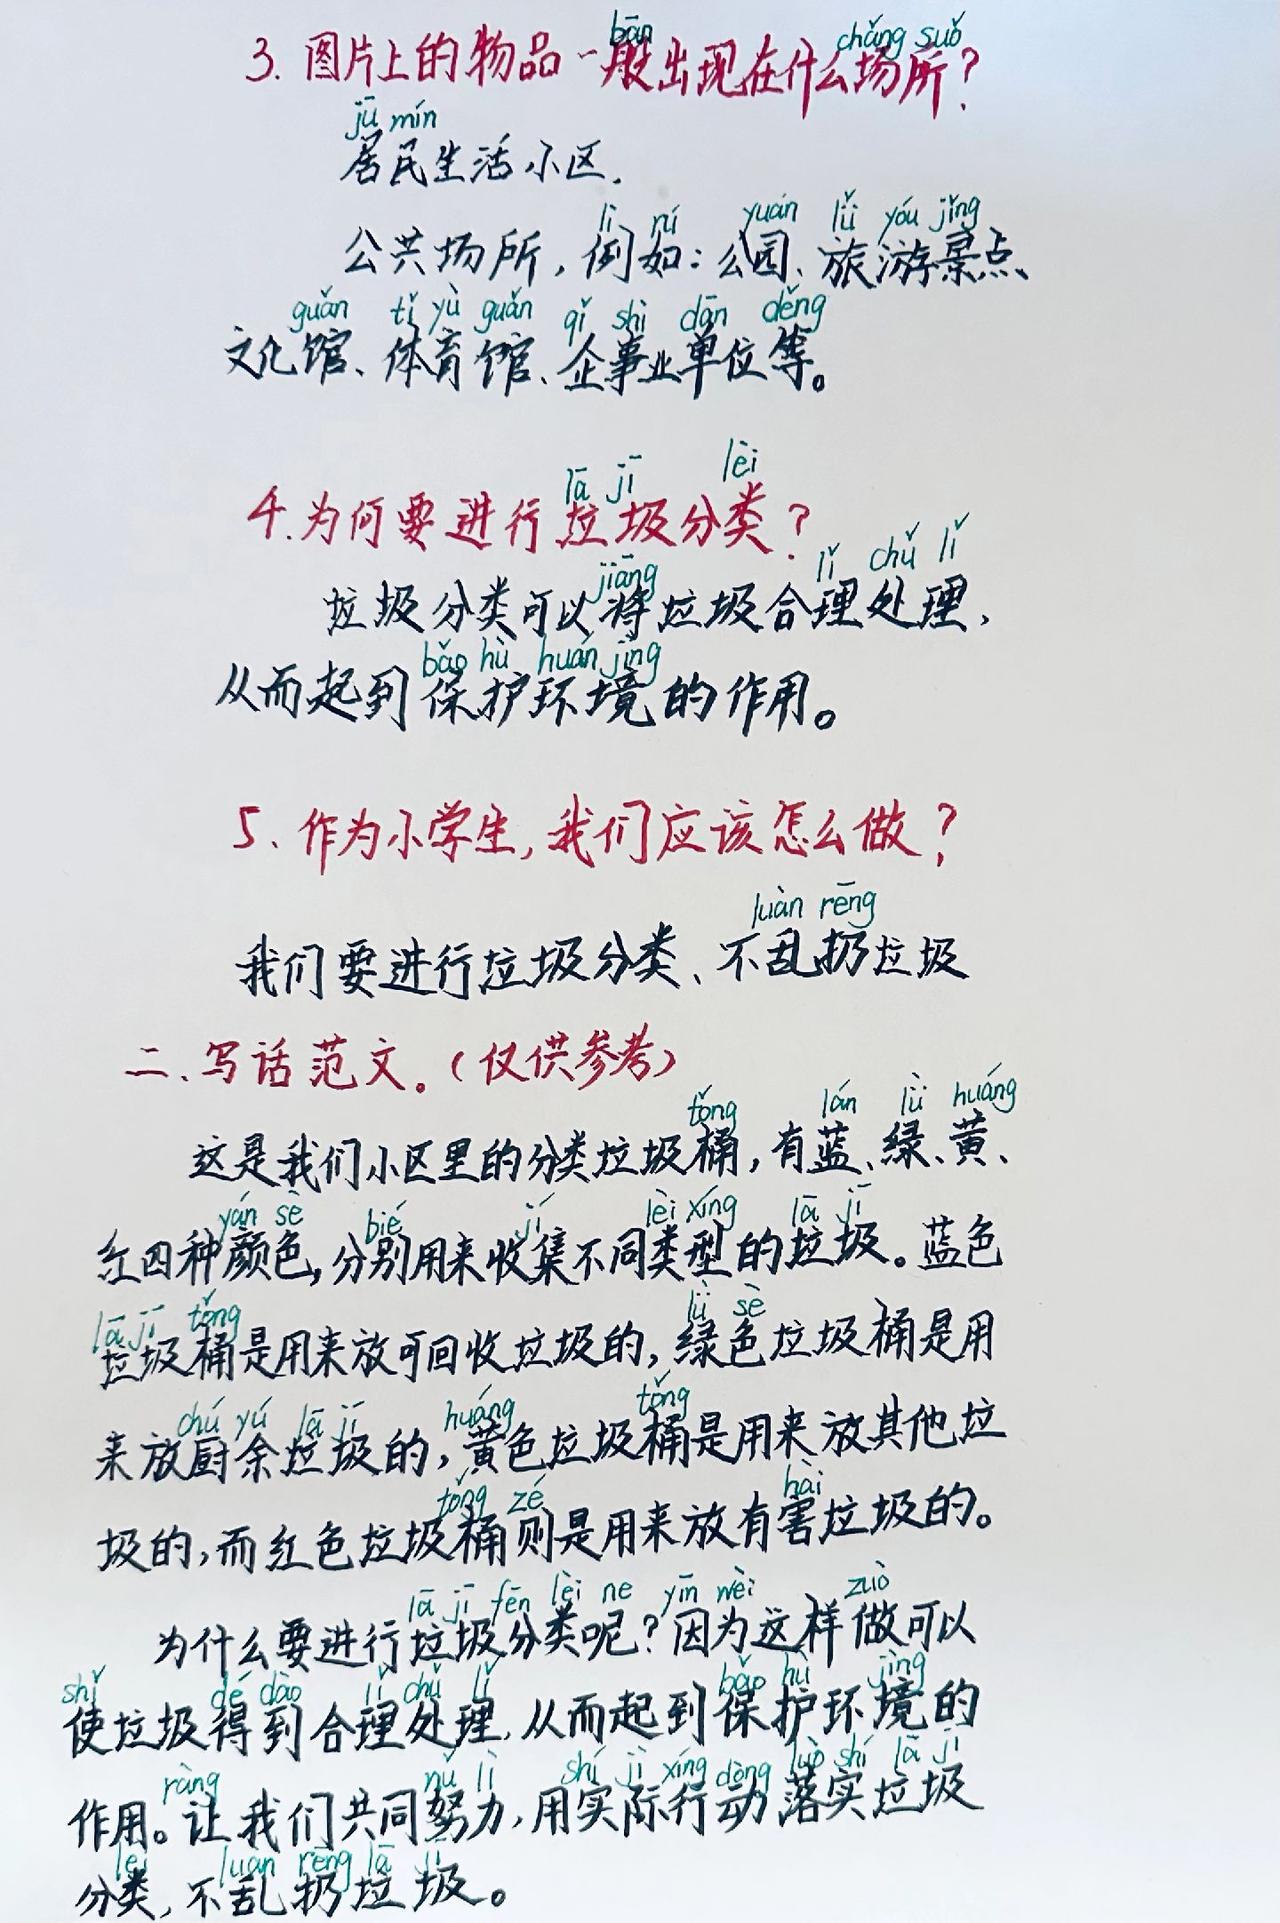 bān chǎng suǒ
3. 图片上的物品一般出现在什么场所？
jū mín
居民生活小区.
lì rú yuán lǚ yóu jǐng
公共场所，例如：公园、旅游景点、
guǎn tǐ yù guǎn qǐ shì dān děng
文化馆、体育馆、企事业单位等。
lā jī lèi
4.为何要进行垃圾分类？
jiāng lǐ chǔ lǐ
垃圾分类可以将垃圾合理处理，
bǎo hù huán jìng
从而起到保护环境的作用。
5、作为小学生，我们应该怎么做？
luàn rēng
我们要进行垃圾分类、不乱扔垃圾
二、写话范文。（仅供参考）
tǒng lán lǜ huáng
这是我们小区里的分类垃圾桶，有蓝、绿、黄、
yán sè bié jí lèi xíng lā jī
红四种颜色，分别用来收集不同类型的垃圾。蓝色
lā jī tǒng lǜ sè
垃圾桶是用来放可回收垃圾的，绿色垃圾桶是用
chú yú lā jī huáng tǒng
来放厨余垃圾的，黄色垃圾桶是用来放其他垃
tǒng zé hài
圾的，而红色垃圾桶则是用来放有害垃圾的。
lā jī fēn lèi ne yīn wèi zuò
为什么要进行垃圾分类呢？因为这样做可以
shǐ dé dào lǐ chǔ lǐ bǎo hù jìng
使垃圾得到合理处理，从而起到保护环境的
ràng nǔ lì shí jì xíng dòng luò shí lā jī
作用。让我们共同努力，用实际行动落实垃圾
lèi luàn rēng lā jī
分类，不乱扔垃圾。